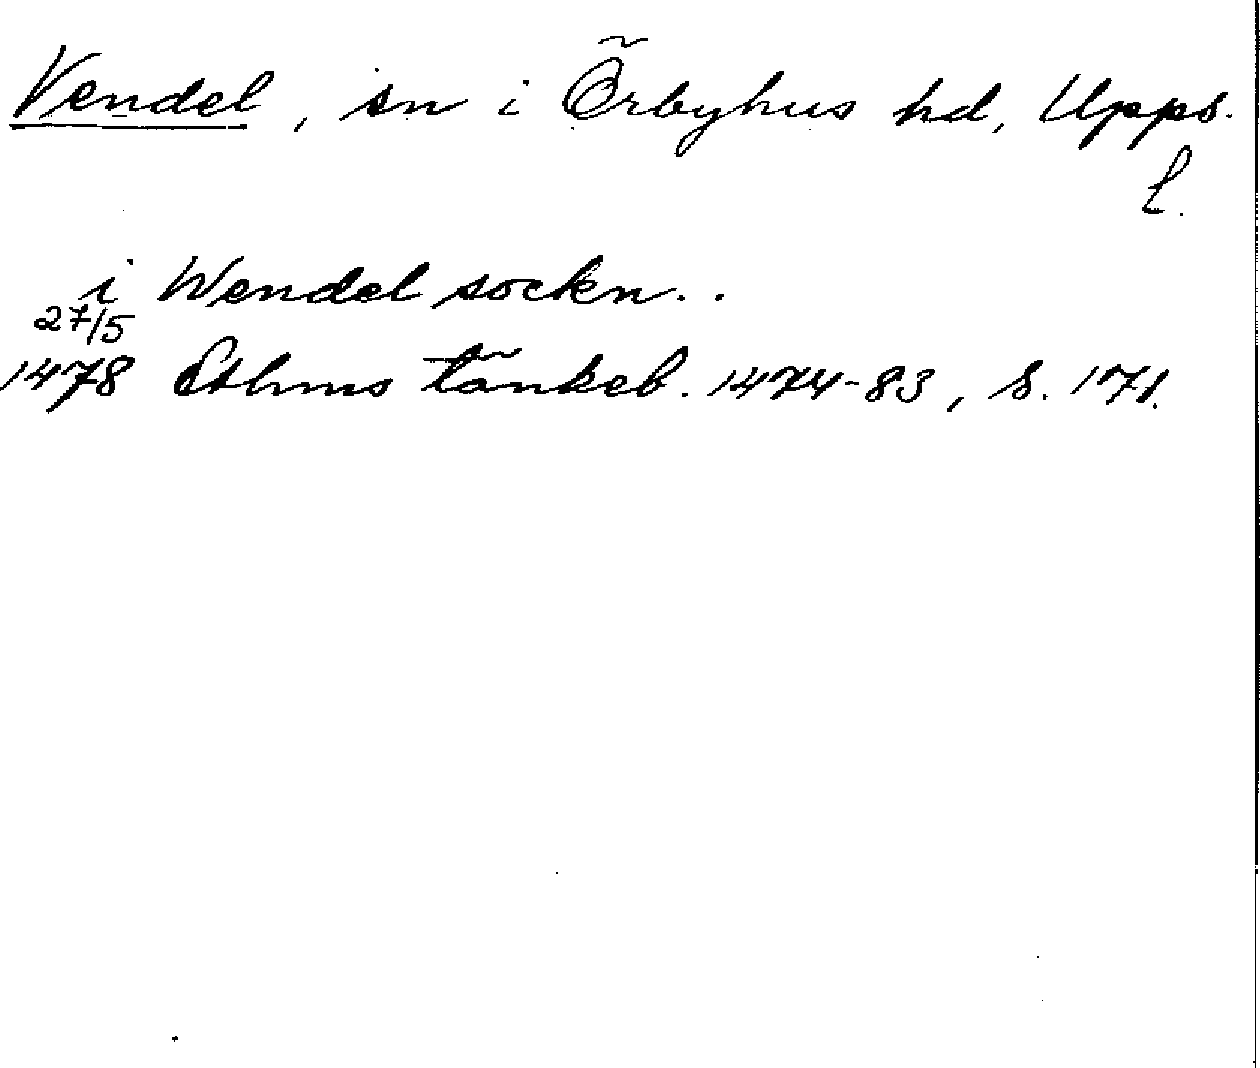 Vendel, sn i Örbyhus hd, Upps.
l.
i Wendel sockn..
27/5
1478 Sthms tänkeb. 1474-83, s. 171.